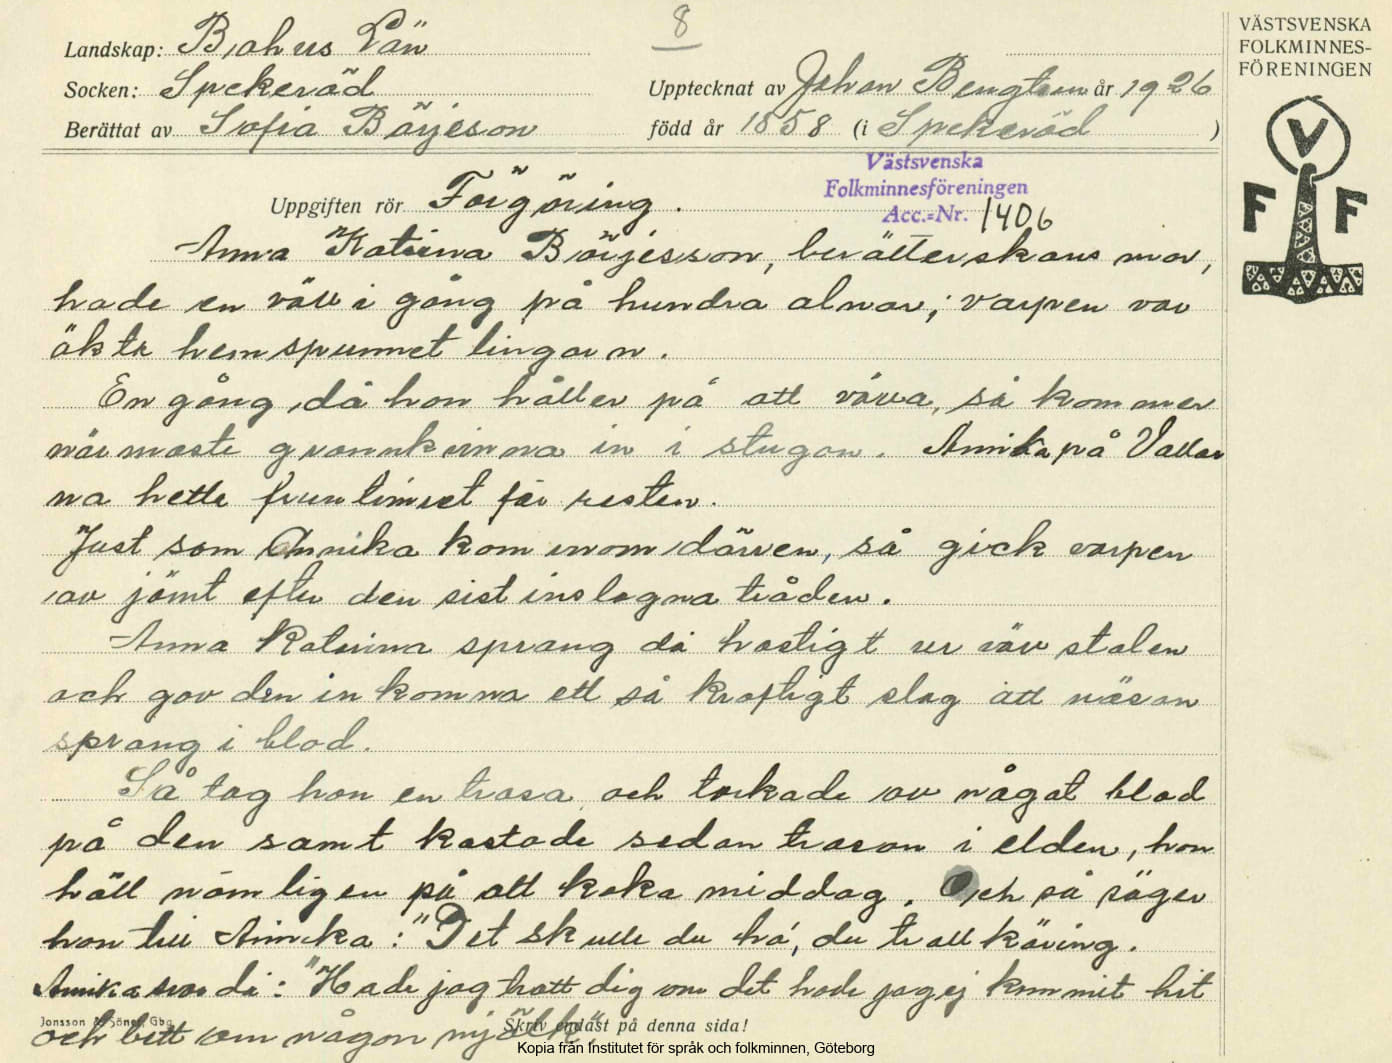 8
VÄSTSVENSKA
FOLKMINNES-
FÖRENINGEN
Landskap: Bohus Län
Socken: Spekeröd
Upptecknat av Johan Bengtson år 1926
Berättat av Sofia Börjeson
född år 1858 (i Spekeröd )
V
F F
Västsvenska
Folkminnesföreningen
Acc.=Nr. 1406
Uppgiften rör Förgöring.
Anna Katrina Börjesson, berätterskans mor,
hade en väv i gång på hundra alnar; varpen var
äkta hemspunnet lingarn.
En gång då hon håller på att väva, så kommer
närmaste grannkvinna in i stugan. Annika på Vallar
na hette fruntimret för resten.
Just som Annika kom inom dörren, så gick varpen
av jämt efter den sist inslagna tråden.
Anna Katrina sprang då hastigt ur väv stolen
och gav den inkomna ett så kraftigt slag att näsan
sprang i blod.
Så tog hon en trasa och torkade av något blod
på den samt kastade sedan trasan i elden, hon
höll nämligen på att koka middag. Och så säger
hon till Annika: "Det skulle du ha, du trollkäring.
Annika svarade: "Hade jag trott dig om det hade jag ej kommit hit
och bett om någon mjölk".
Jonsson & Söner, Gbg
Skriv endast på denna sida!
Kopia från Institutet för språk och folkminnen, Göteborg